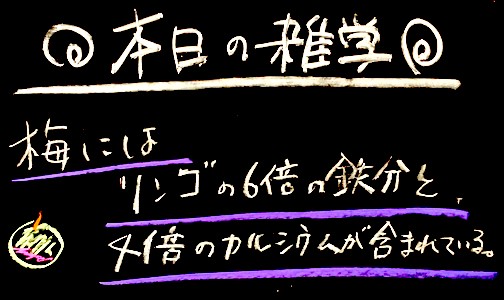 本日の雑学
梅には
リンゴの6倍の鉄分と、
4倍のカルシウムが含まれている。